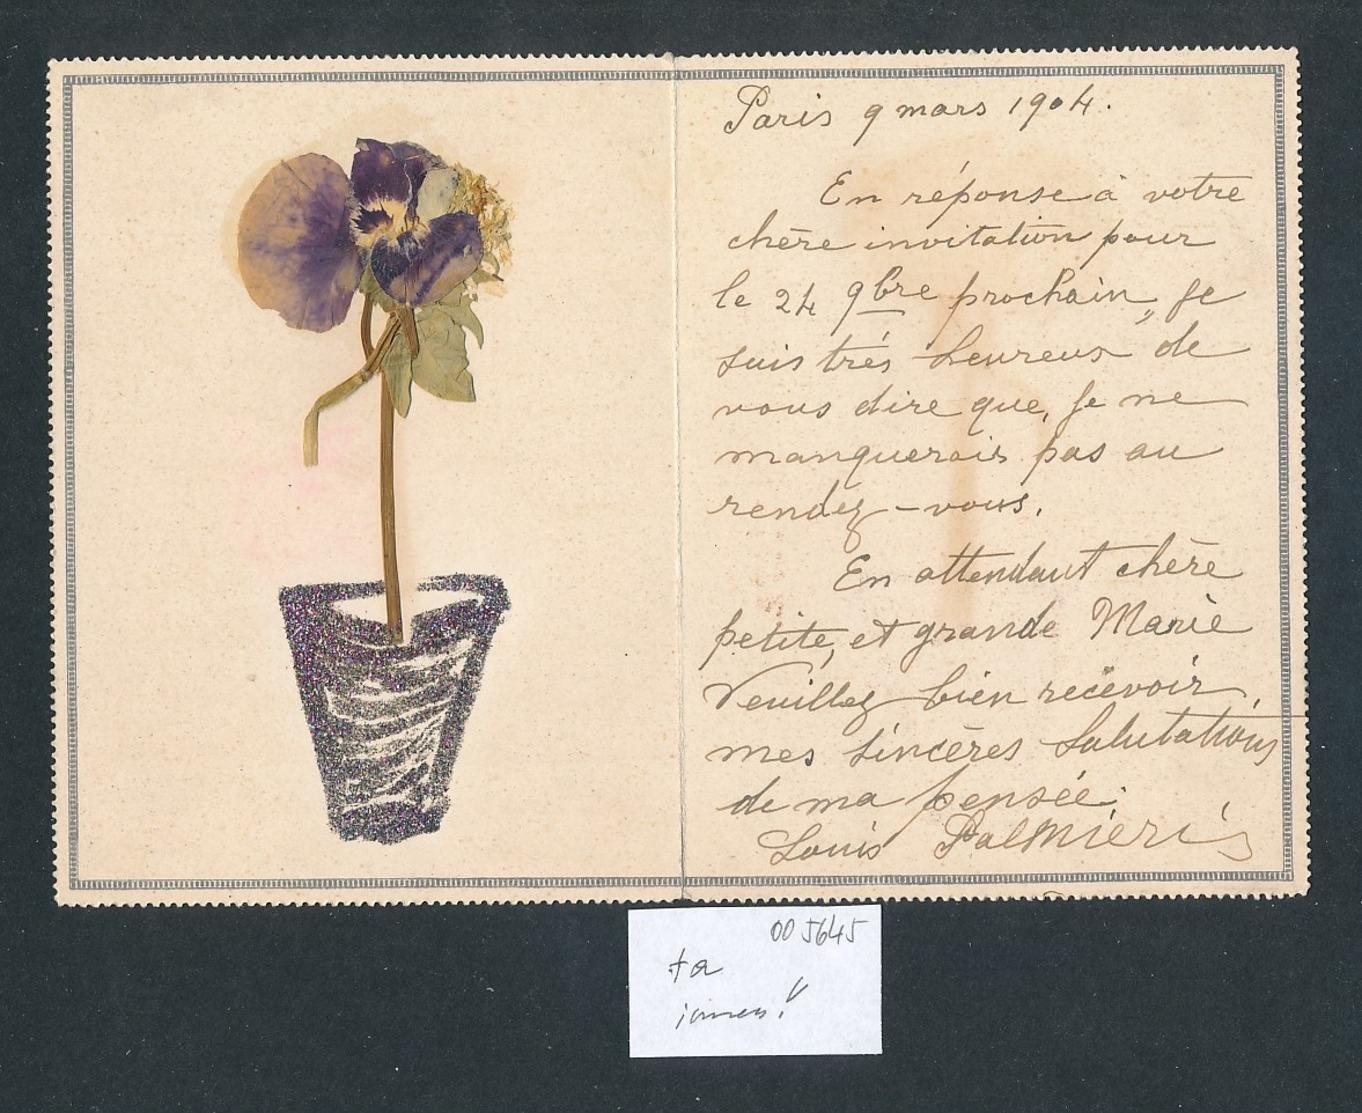 Paris 9 mars 1904.
En réponse à votre
chère invitation pour
le 24 9bre prochain, Je
suis très heureux de
vous dire que, Je ne
manquerais pas au
rendez-vous.
En attendant chère
petite, et grande Marie
Veuillez bien recevoir,
mes sincères Salutations
de ma pensée.
Louis Palmieri
005645